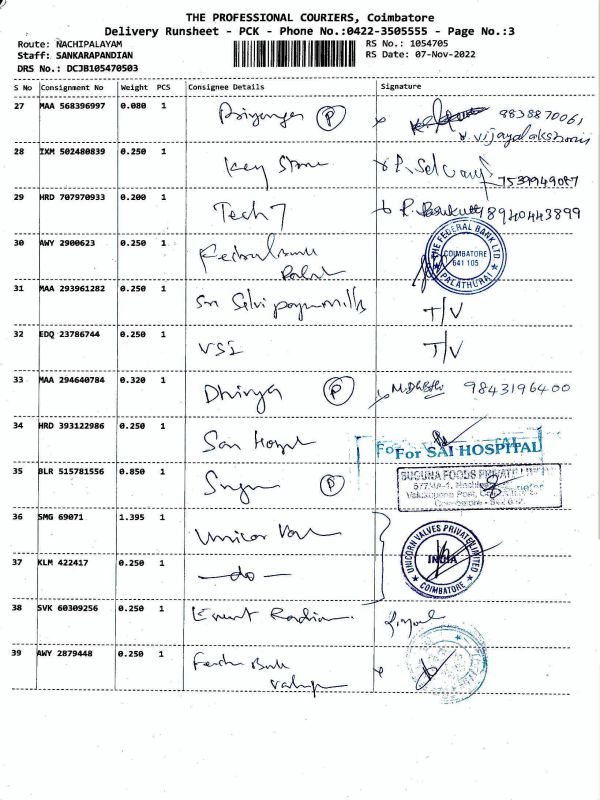 THE PROFESSIONAL COURIERS, Coimbatore
Delivery Runsheet - PCK - Phone No.:0422-3505555 - Page No.:3
Route: NACHIPALAYAM RS No.: 1054705
Staff: SANKARAPANDIAN RS Date: 07-Nov-2022
DRS No.: DCJB105470503
S No Consignment No Weight PCS Consignee Details Signature
27 MAA 568396997 0.080 1 Priyanga P 9838870061
V. Vijayalakshmi
28 IXM 502480839 0.250 1 Key Stone
7539949087
29 HRD 707970933 0.200 1 Tech 7 8940443899
30 AWY 2900623 0.250 1 Federal Bank
THE FEDERAL BANK LTD
COIMBATORE
641 105
PALATHURAI
31 MAA 293961282 0.250 1 Sri Selvi T/V
32 EDQ 23786744 0.250 1 VSI T/V
33 MAA 294640784 0.320 1 Dhivya P 9843196400
34 HRD 393122986 0.250 1 Sai
For SAI HOSPITAL
35 BLR 515781556 0.850 1 P
SUGUNA FOODS PRIVATE LIMITED
36 SMG 69071 1.395 1 Unicor
UNICORN VALVES PRIVATE LIMITED
INDIA
37 KLM 422417 0.250 1 - do -
38 SVK 60309256 0.250 1
39 AWY 2879448 0.250 1